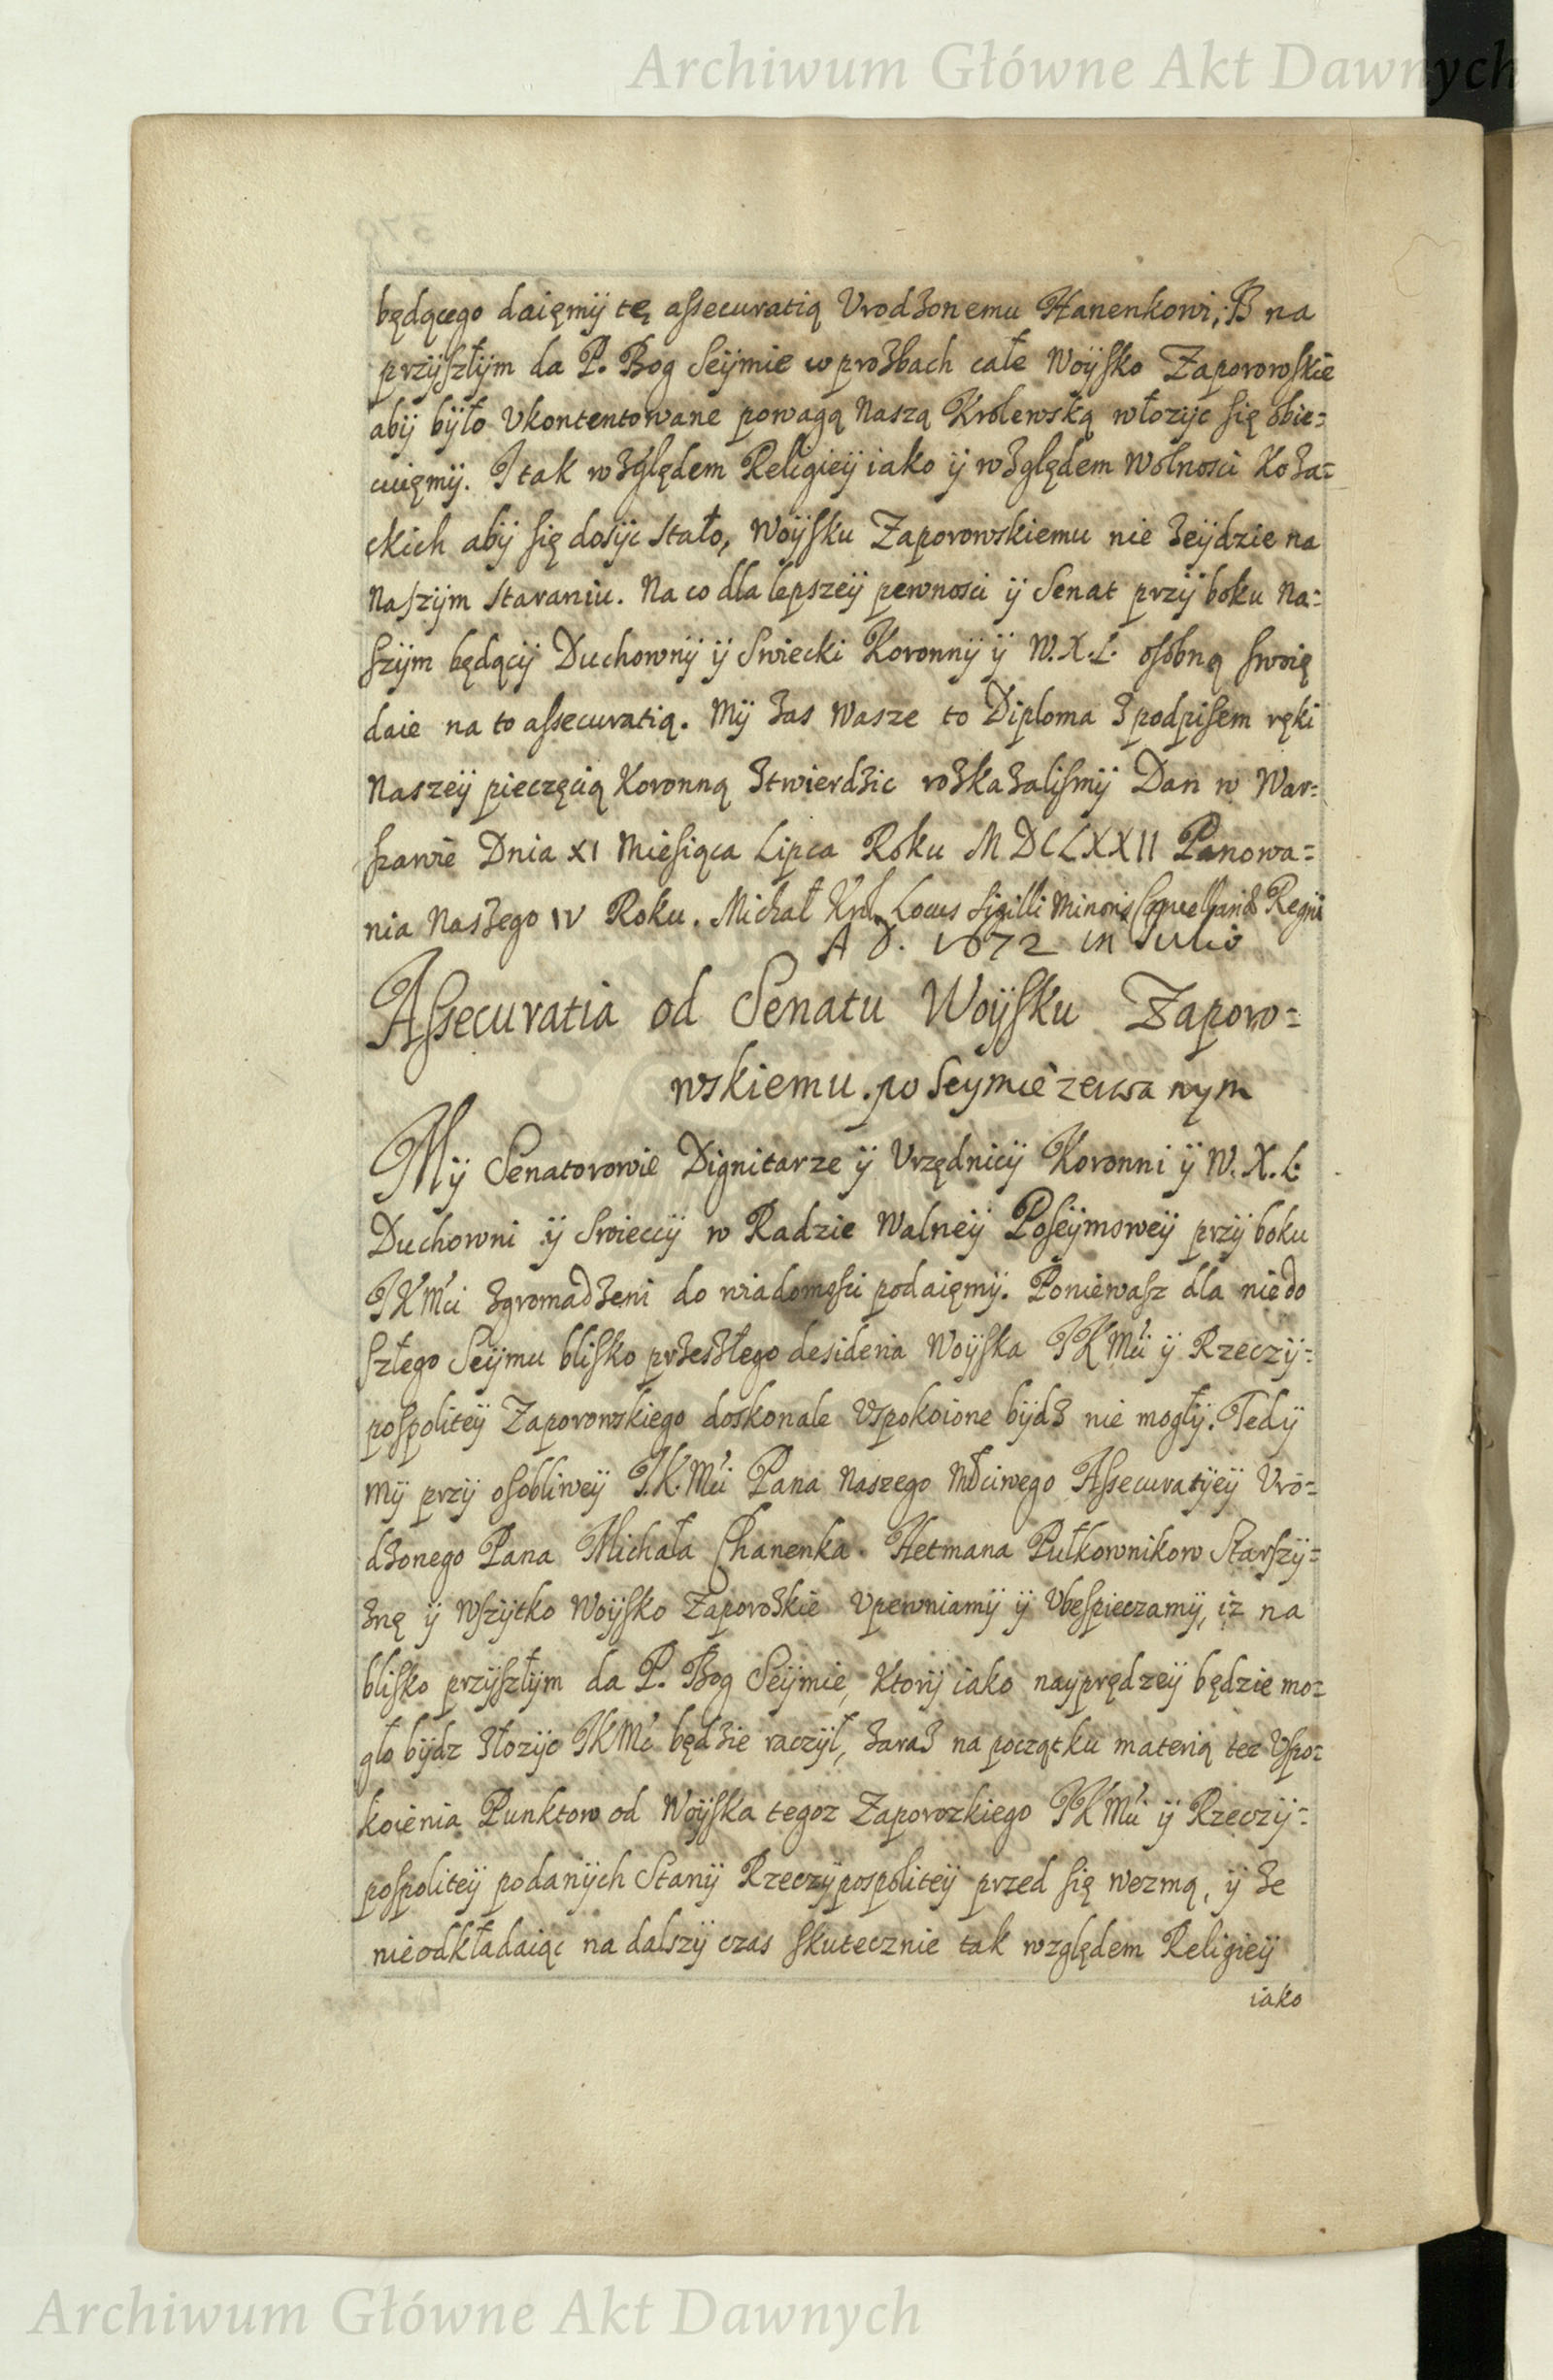 Archiwum Główne Akt Dawnych
będącego daięmÿ tę assecuratią Vrodzonemu Hanenkowi, JS na
przÿszłÿm da P. Bog Seÿmie w prozbach całe Woÿsko Zaporowskie
abÿ bÿło Vkontentowane powagą Naszą Krolewską włozÿc się obie=
cuięmÿ. I tak względem Religieÿ iako ÿ względem Wolnosci Koza=
ckich abÿ się dosÿc stało, Woÿsku Zaporowskiemu nie zeÿdzie na
Naszÿm staraniu. Na co dla lepszeÿ pewnosci ÿ Senat przÿ boku Na=
szÿm będącÿ Duchownÿ ÿ Swiecki Koronnÿ ÿ W.X.L. osobną swoię
daie na to assecuratią. Mÿ zas Wasze to Diploma z podpisem ręki
Naszeÿ pieczęcią Koronną ztwierdzic rozkazalismÿ Dan w War=
szawie Dnia XI Miesiąca Lipca Roku MDCLXXII Panowa=
nia Naszego IV Roku. Michał Krol. Locus Sigilli Minoris Regni
A D. 1672 in Julio
Assecuratia od Senatu Woÿsku Zaporo=
wskiemu. po Seymie zerwanym
Mÿ Senatorowie Dignitarze ÿ Vrzędnicÿ Koronni ÿ W.X.L.
Duchowni ÿ Swieccÿ w Radzie Walneÿ Poseÿmoweÿ przÿ boku
JKMci zgromadzeni do wiadomosci podaięmÿ. Poniewasz dla niedo
szłego Seÿmu blisko przeszłego desideria Woÿska JKMci ÿ Rzeczÿ=
pospoliteÿ Zaporowskiego doskonale Vspokoione bÿdz nie mogłÿ. Tedÿ
mÿ przÿ osobliweÿ J.K.Mci Pana Naszego Młciwego Assecuratÿeÿ Vro=
dzonego Pana Michała Chanenka. Hetmana Pułkownikow Starszÿ=
znę ÿ wszÿtko Woÿsko Zaporozkie Vpewniamÿ ÿ Vbespieczamÿ, iz na
blisko przÿszłÿm da P. Bog Seÿmie, Ktorÿ iako nayprędzeÿ będzie mo=
gło bÿdz złozÿc JKMc będzie raczÿł, zaraz na początku materią tec Vspo=
koienia Punktow od Woÿska tegoz Zaporozkiego JKMci ÿ Rzeczÿ=
pospoliteÿ podanÿch Stanÿ Rzeczÿpospoliteÿ przed się wezmą, ÿ ze
nieodkładaiąc na dalszÿ czas skutecznie tak względem Religieÿ
iako
Archiwum Główne Akt Dawnych